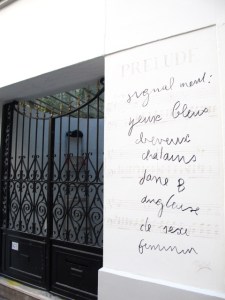 PRELUDE
signalment:
yeux bleus
cheveux
chatains
Jane B
anglaise
de sexe
feminin